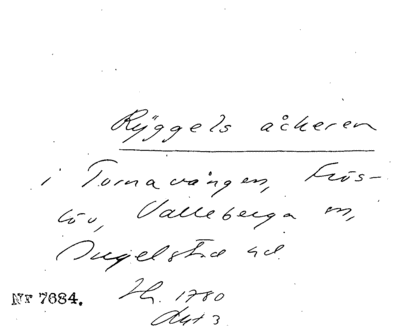 Ryggels åckeren
i Tornavången, Frös-
löv, Valleberga sn,
Ingelstad hd.
Nr 7684.
Hh. 1780
Akt 3